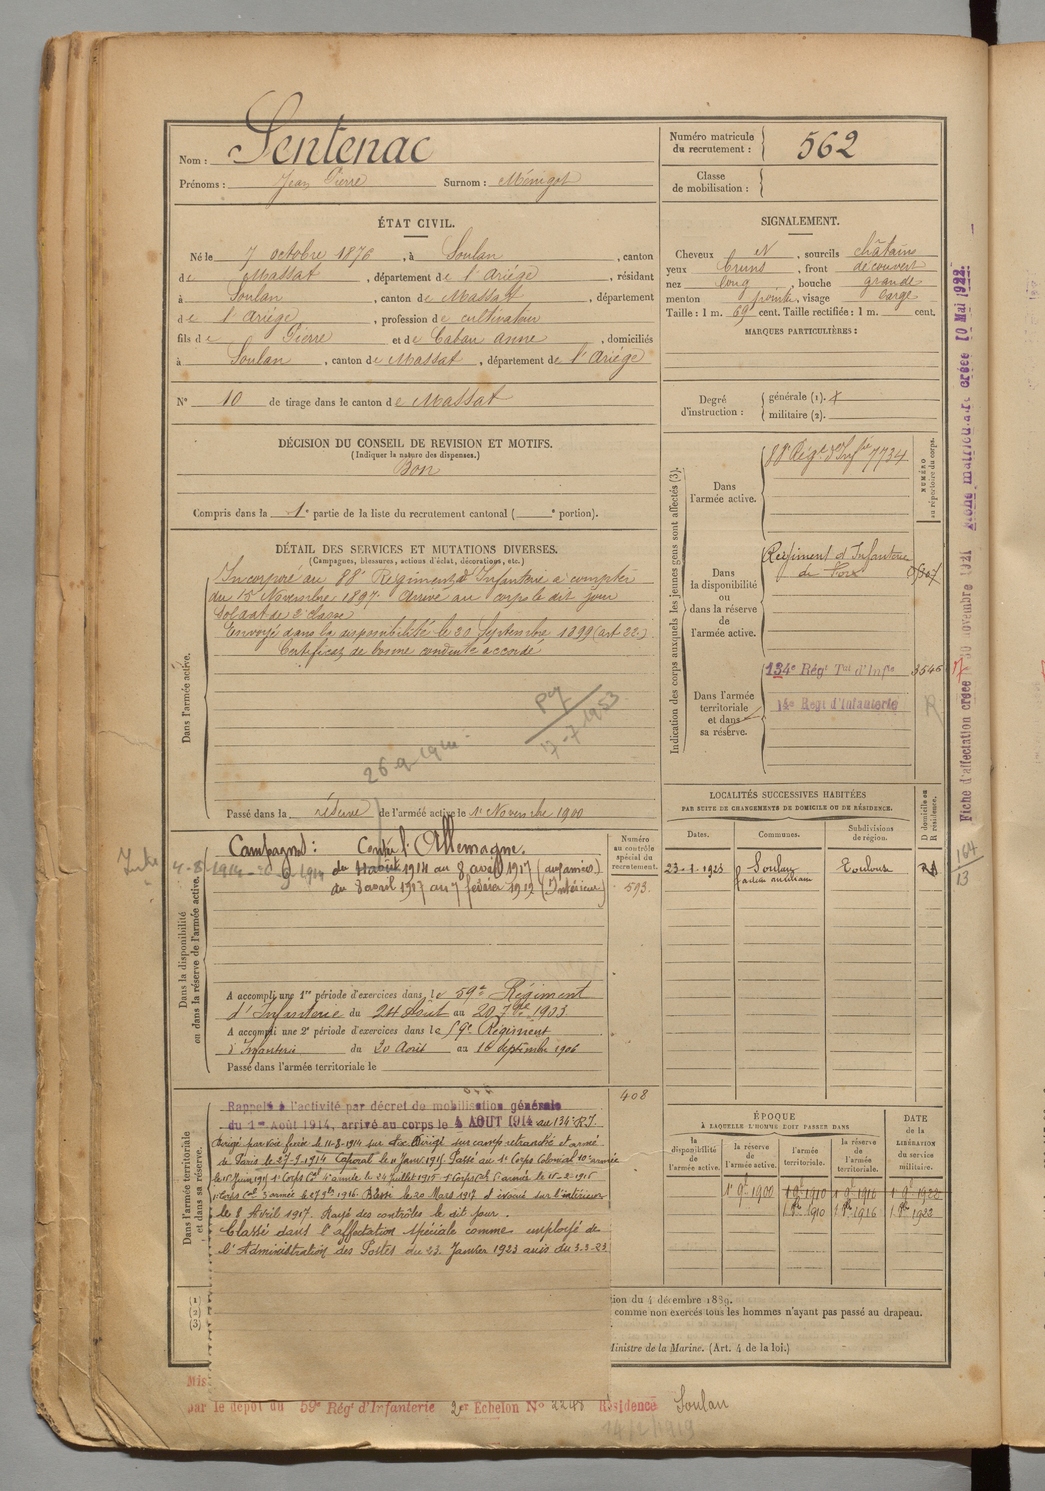 Nom : Sentenac
Prénoms : Jean Pierre Surnom : Ménigot
Numéro matricule du recrutement : 562
Classe de mobilisation :
ÉTAT CIVIL.
Né le 7 octobre 1876, à Soulan, canton
de Massat, département de l'Ariége, résidant
à Soulan, canton de Massat, département
de l'Ariége, profession de cultivateur
fils de Pierre et de Cabau anne, domiciliés
à Soulan, canton de Massat, département de l'Ariége
N° 10 de tirage dans le canton de Massat
SIGNALEMENT.
Cheveux N, sourcils châtains
yeux bruns, front découvert
nez long, bouche grande
menton pointu, visage large
Taille : 1 m. 69 cent. Taille rectifiée : 1 m. cent.
MARQUES PARTICULIÈRES :
Degré d'instruction : générale (1). militaire (2).
DÉCISION DU CONSEIL DE REVISION ET MOTIFS.
(Indiquer la nature des dispenses.)
Bon
Compris dans la 1e partie de la liste du recrutement cantonal ( e portion).
DÉTAIL DES SERVICES ET MUTATIONS DIVERSES.
(Campagnes, blessures, actions d'éclat, décorations, etc.)
Dans l'armée active.
Incorporé au 88e Régiment d'Infanterie à compter
du 15 Novembre 1897. Arrivé au corps le dit jour
Soldat de 2e classe
Envoyé dans la disponibilité le 20 Septembre 1899 (art. 22.)
Certificat de bonne conduite accordé
17-7-1953
Passé dans la réserve de l'armée active le 1er Novembre 1900
Indication des corps auxquels les jeunes gens sont affectés (3).
NUMÉRO au répertoire du corps.
Dans l'armée active.
88e Régt d'Infie 7734
Dans la disponibilité ou dans la réserve de l'armée active.
Régiment d'Infanterie
de Foix
Dans l'armée territoriale et dans sa réserve.
134e Régt Tal d'Infie 3546
d'Infanterie
R
Dans la disponibilité ou dans la réserve de l'armée active.
Campagnes : Contre l'Allemagne.
du 4 août 1914 au 8 avril 1917 (aux armées)
du 8 avril 1917 au 7 février 1919 (Intérieur)
Numéro au contrôle spécial du recrutement.
593
A accompli une 1re période d'exercices dans le 59e Régiment
d'Infanterie du 24 Août au 20 7bre 1903
A accompli une 2e période d'exercices dans le 59e Régiment
d'Infanterie du 20 Août au 16 Septembre 1906
Passé dans l'armée territoriale le
408
LOCALITÉS SUCCESSIVES HABITÉES
PAR SUITE DE CHANGEMENTS DE DOMICILE OU DE RÉSIDENCE.
Dates. Communes. Subdivisions de région. D domicile ou R résidence.
23-1-1923 Soulan facteur auxiliaire Toulouse
Dans l'armée territoriale et dans sa réserve.
Rappelé à l'activité par décret de mobilisation générale
du 1er Août 1914, arrivé au corps le 4 AOUT 1914 au 134e R.I.
Dirigé par voie ferrée le 11-8-1914 sur Aix. Dirigé sur camp retranché et armé
de Paris le 27-9-1914 Caporal le 11 Janv. 1915. Passé au 1er Corps Colonial 10e armée
le 15 Juin 1915 1er Corps Cal 4e armée le 24 juillet 1915
Blessé le 20 Mars 1917 et évacué sur l'intérieur
le 8 Avril 1917. Rayé des contrôles le dit jour.
Classé dans l'affectation spéciale comme employé de
l'Administration des Postes du 23 Janvier 1923 avis du 3-2-23
ÉPOQUE
À LAQUELLE L'HOMME DOIT PASSER DANS
la disponibilité de l'armée active. la réserve de l'armée active. l'armée territoriale. la réserve de l'armée territoriale.
DATE de la LIBÉRATION DU service militaire.
1er 9bre 1900 1er 9bre 1910 1er 9bre 1916 1er 9bre 1922
1er 8bre 1910 1er 8bre 1916 1er 8bre 1922
(1)
(2)
(3)
tion du 4 décembre 1889.
comme non exercés tous les hommes n'ayant pas passé au drapeau.
Ministre de la Marine. (Art. 4 de la loi.)
par le dépôt du 59e Régt d'Infanterie 2er Echelon No 2248 Résidence Soulan
14/2/1919
Fiche d'affectation créée 30 novembre 1921 Fiche matriculaire créée 10 Mai 1922.
164
13